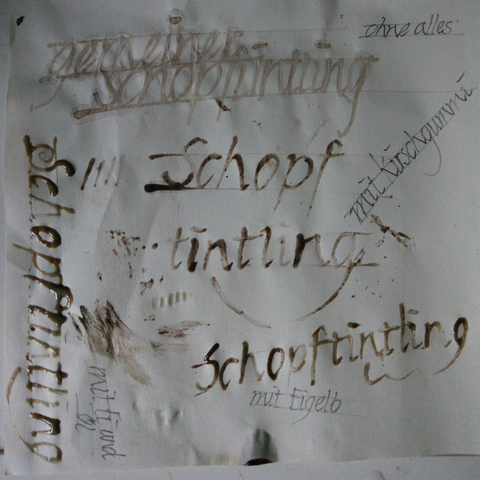 gemeiner
Schopftintling
ohne alles
mit Kirschgummi
Schopf
tintling
Schopftintling
mit Ei und
Öl
Schopftintling
mit Eigelb